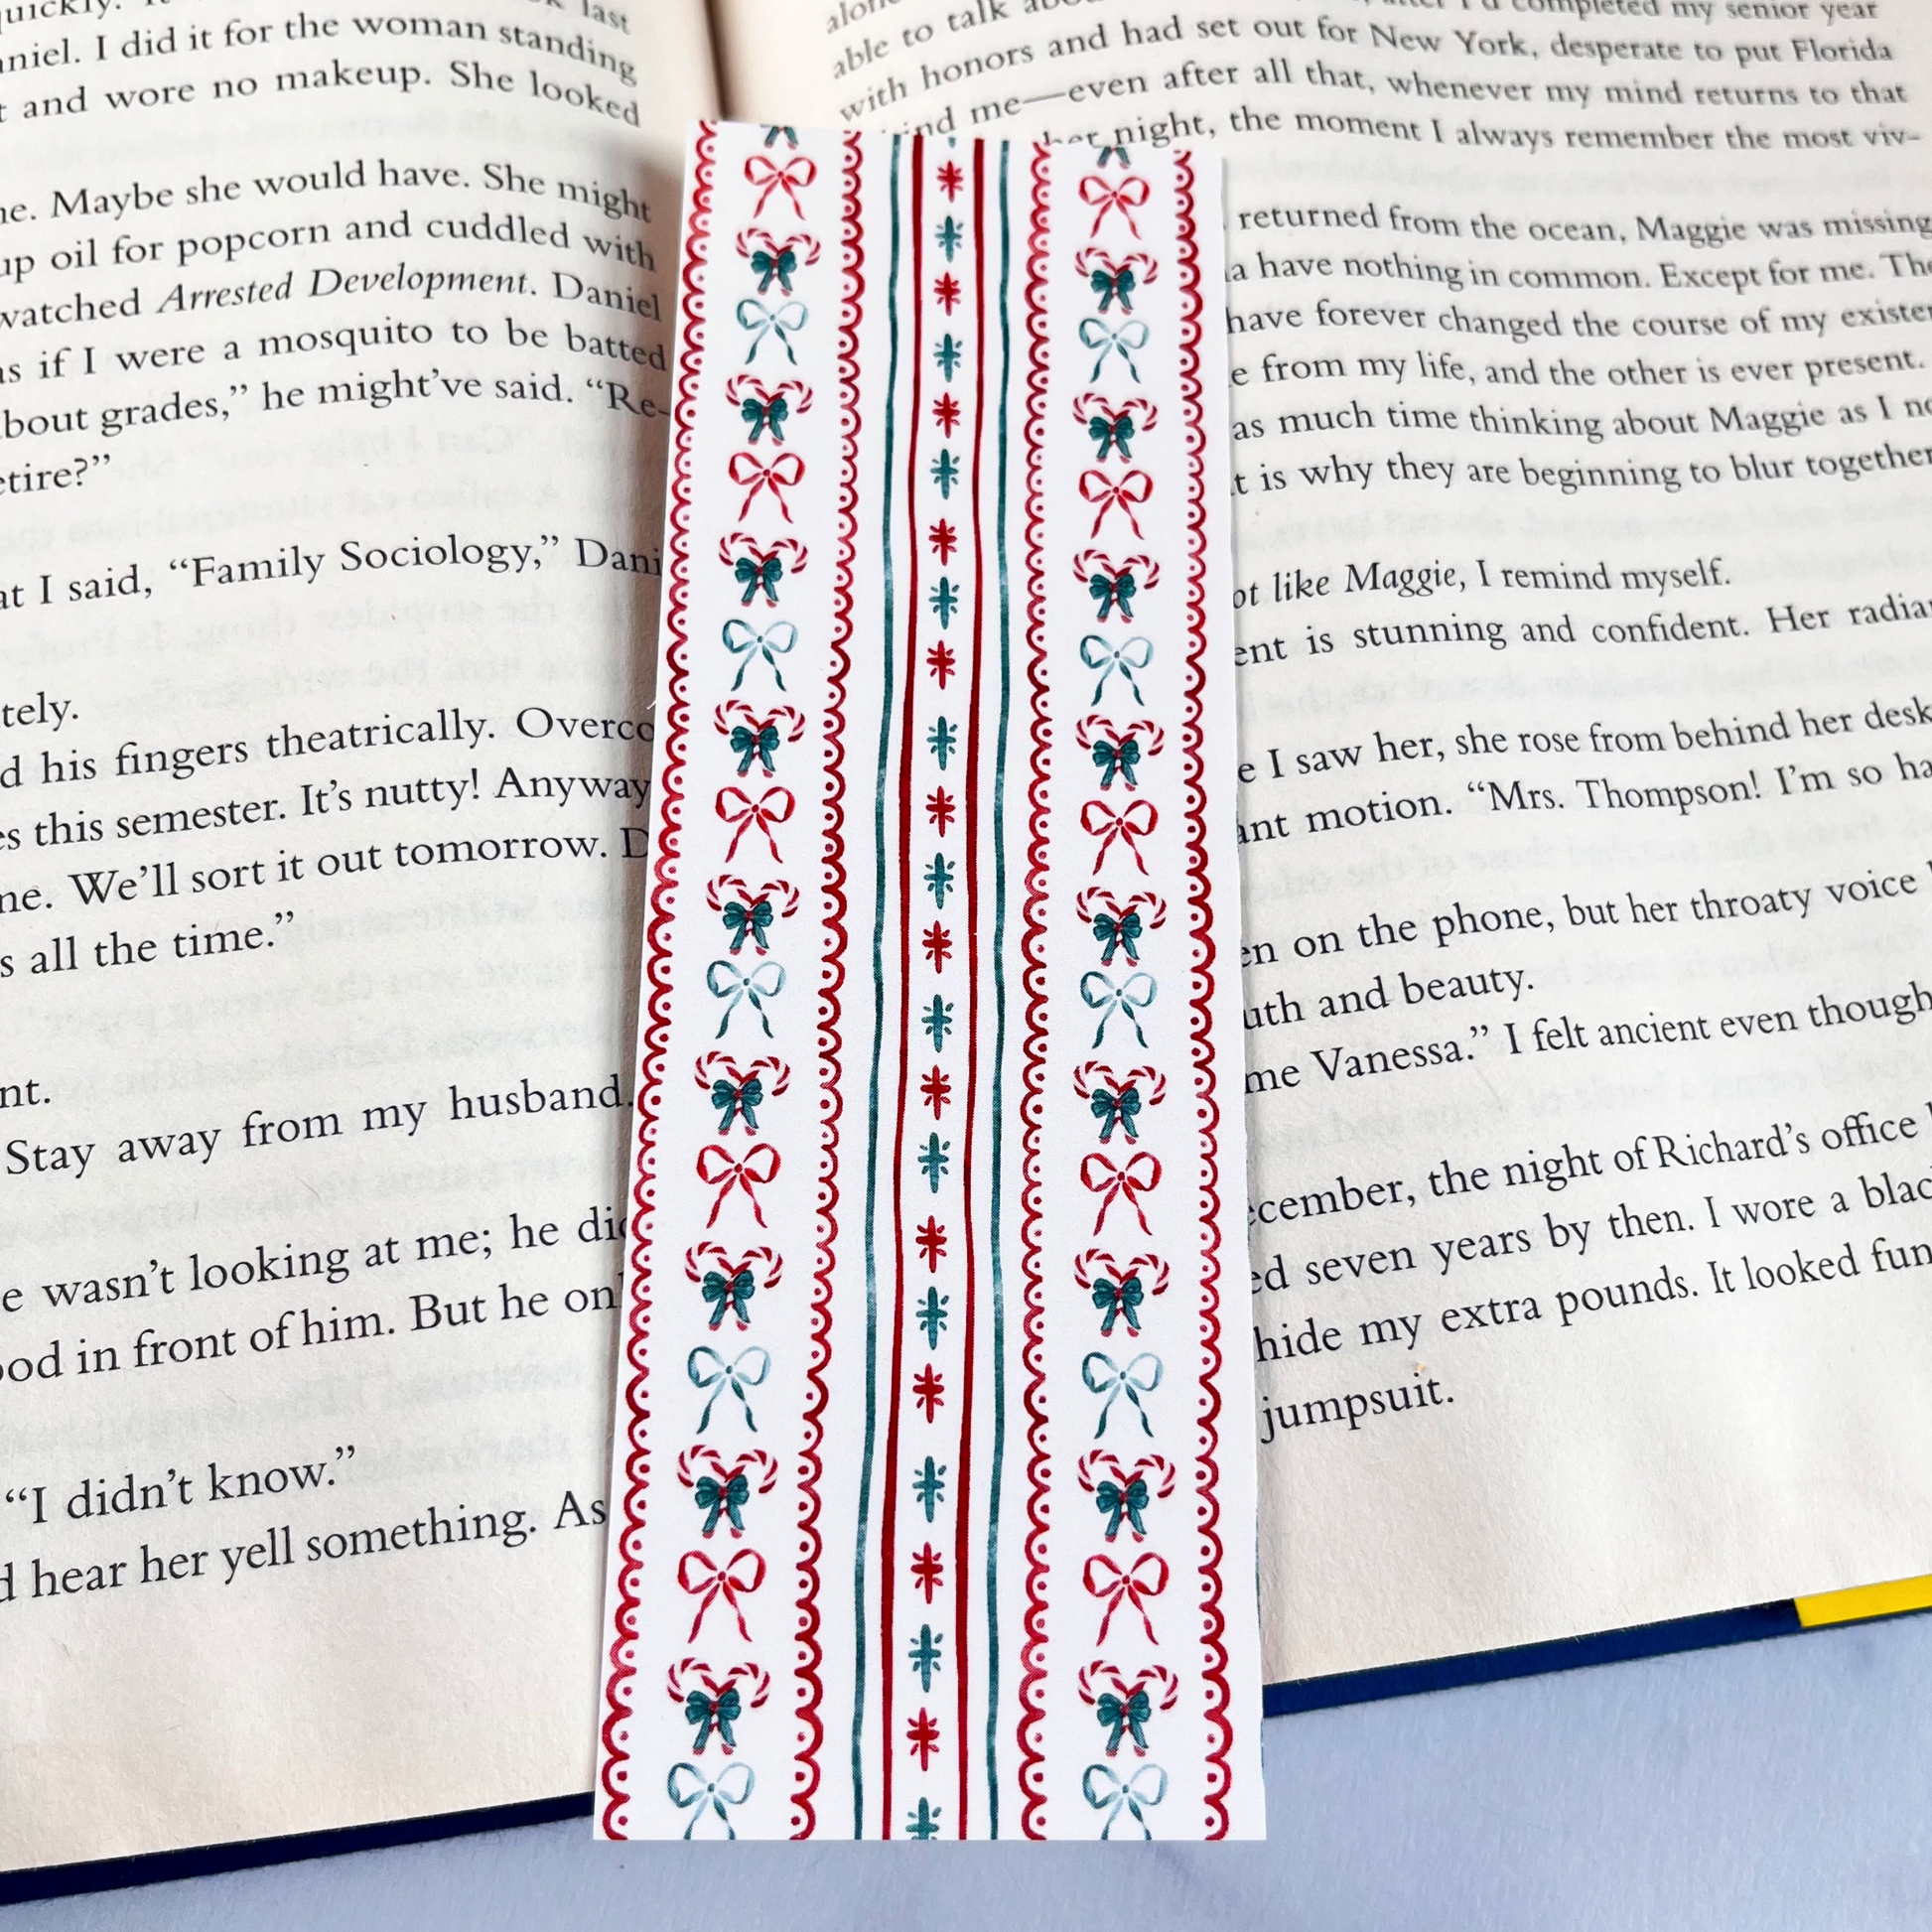 last
niel. I did it for the woman standing
and wore no makeup. She looked
ne. Maybe she would have. She might
up oil for popcorn and cuddled with
watched Arrested Development. Daniel
as if I were a mosquito to be batted
bout grades,” he might’ve said. “Re-
etire?”
at I said, “Family Sociology,” Dani
tely.
d his fingers theatrically. Overco
es this semester. It’s nutty! Anyway
ne. We’ll sort it out tomorrow. D
s all the time.”
nt.
Stay away from my husband.
e wasn’t looking at me; he did
ood in front of him. But he onl
“I didn’t know.”
d hear her yell something. As
able to talk
with honors and had set out for New York, desperate to put Florida
ind me—even after all that, whenever my mind returns to that
night, the moment I always remember the most viv-
returned from the ocean, Maggie was missing
a have nothing in common. Except for me. The
have forever changed the course of my existen
e from my life, and the other is ever present.
as much time thinking about Maggie as I no
t is why they are beginning to blur together
ot like Maggie, I remind myself.
ent is stunning and confident. Her radian
e I saw her, she rose from behind her desk
ant motion. “Mrs. Thompson! I’m so ha
en on the phone, but her throaty voice
uth and beauty.
me Vanessa.” I felt ancient even though
ecember, the night of Richard’s office
ed seven years by then. I wore a blac
hide my extra pounds. It looked fun
jumpsuit.